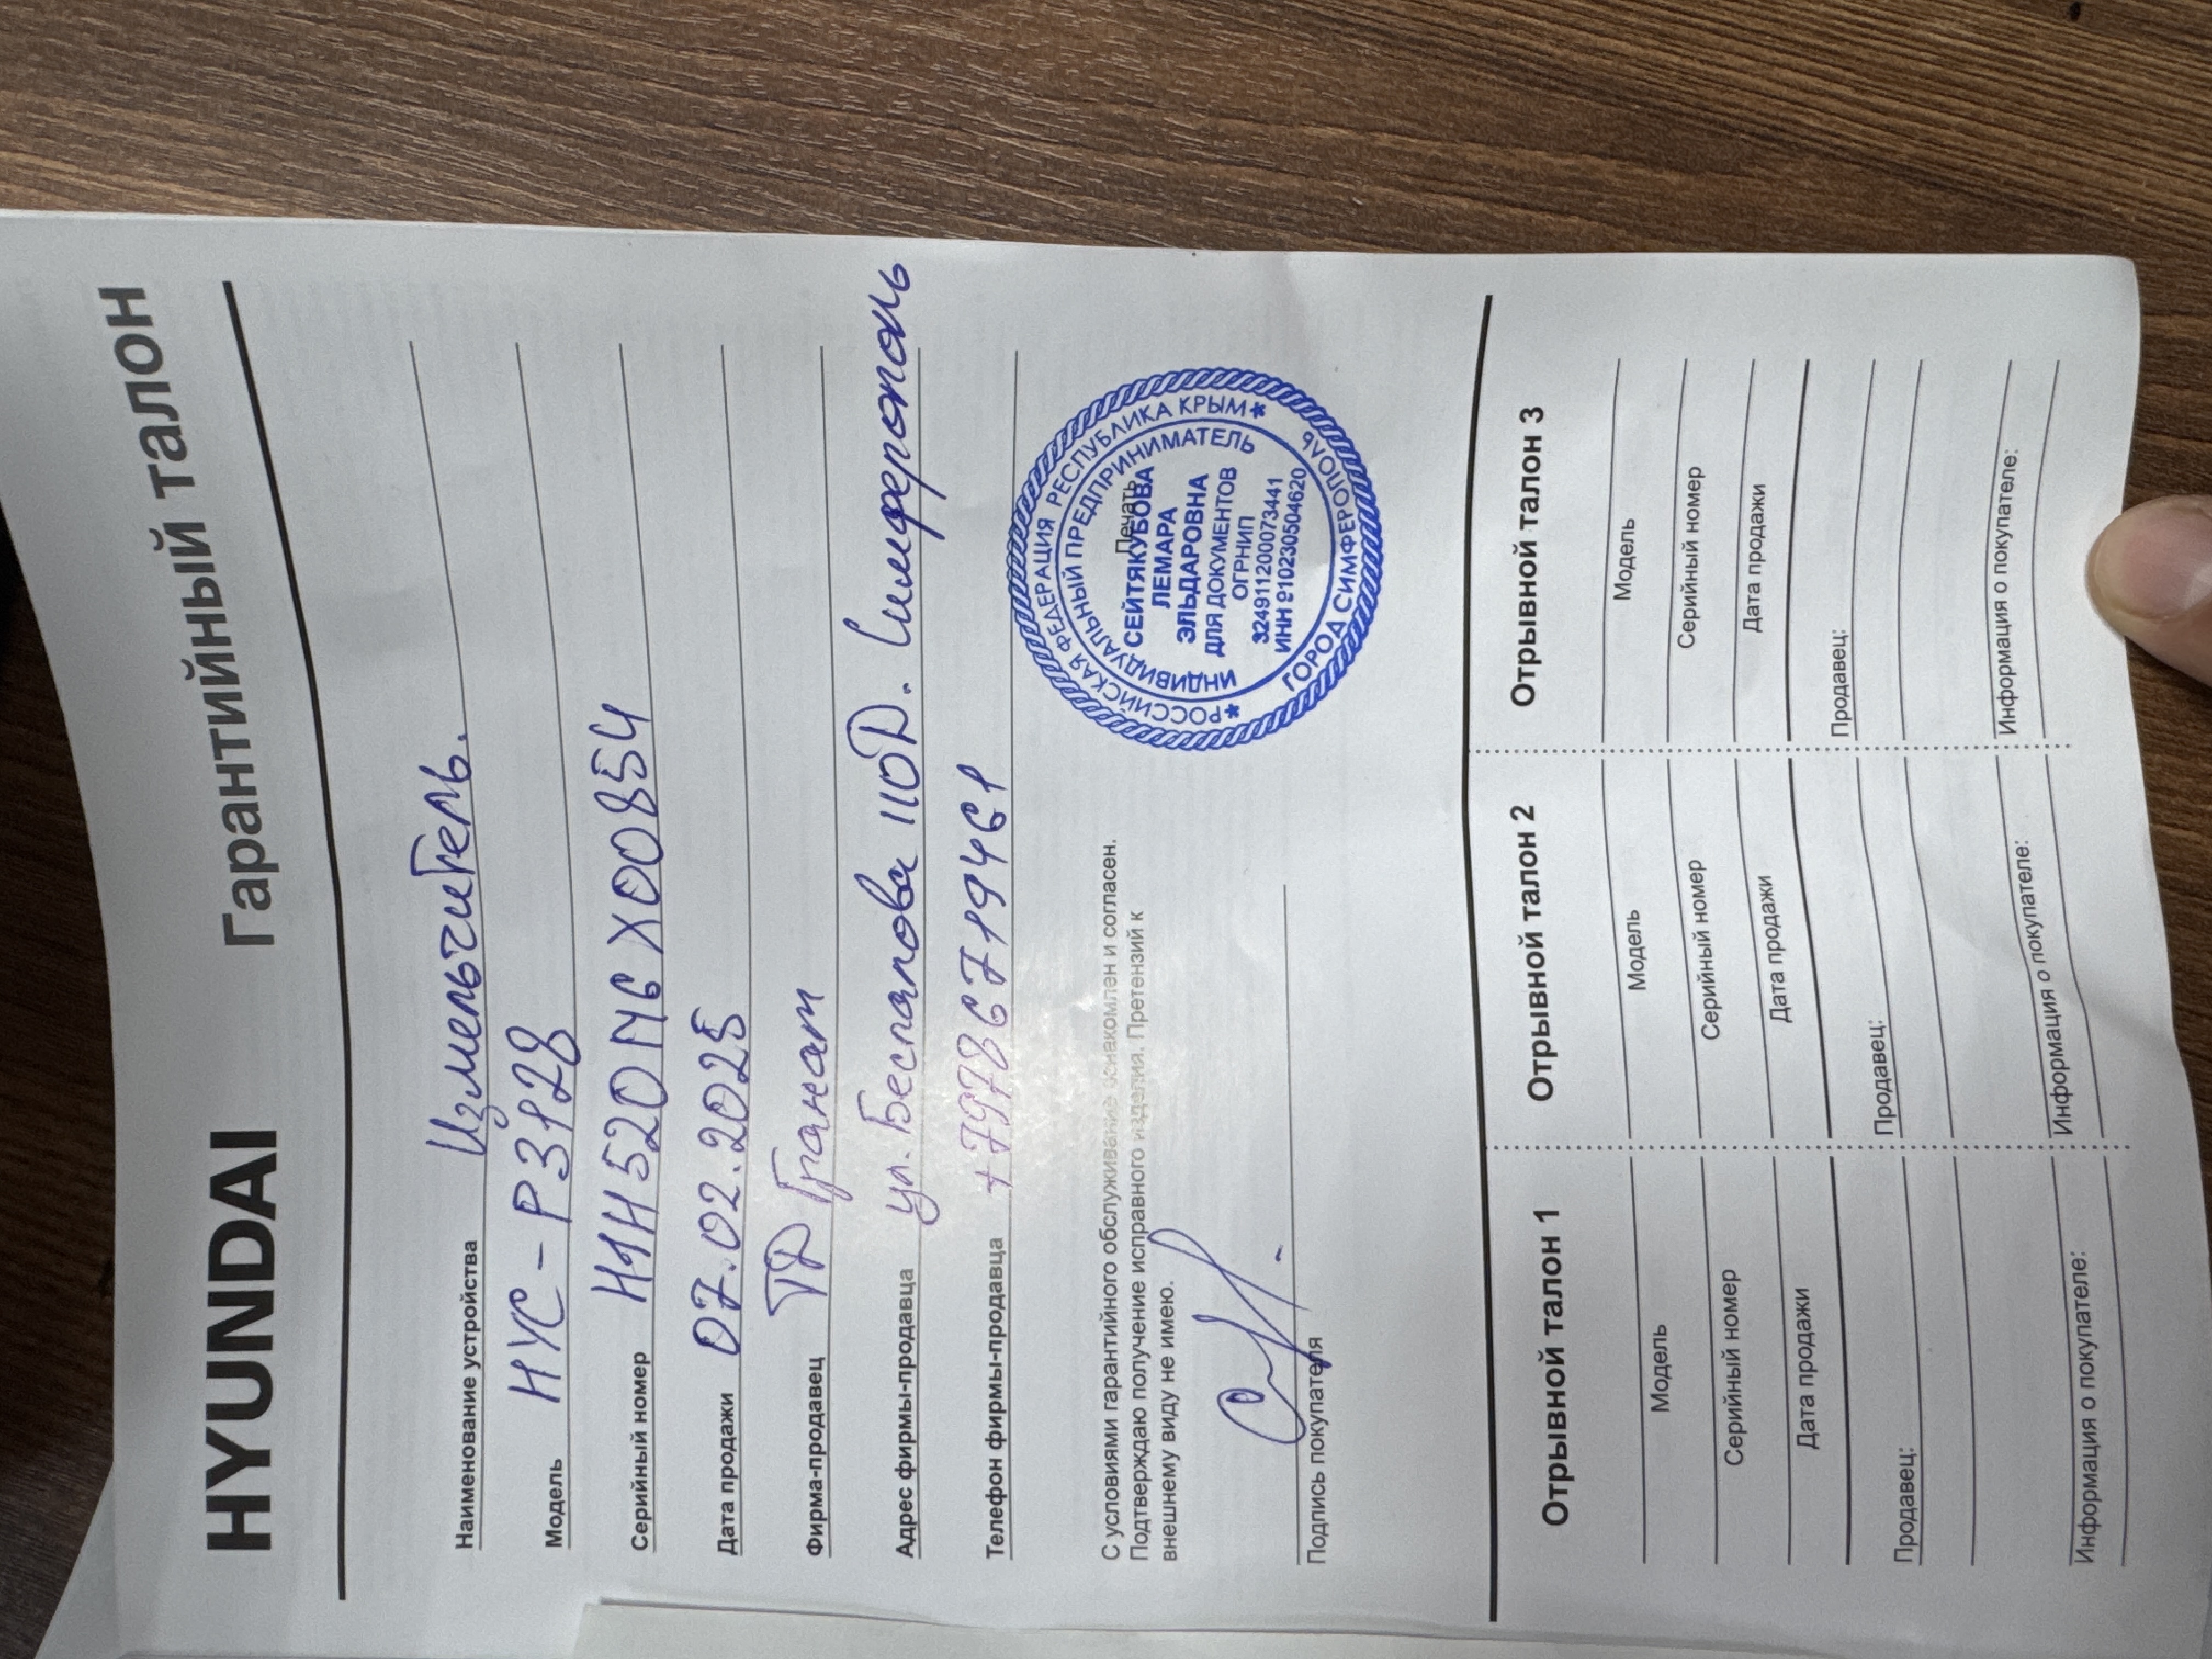 HYUNDAI Гарантийный талон
Наименование устройства Измельчитель.
Модель HYC-P3128
Серийный номер
Дата продажи 07.02.2025
Фирма-продавец ТД Гранат
Адрес фирмы-продавца ул. Беспалова 110Д. Симферополь
Телефон фирмы-продавца +79786719461
С условиями гарантийного обслуживание ознакомлен и согласен.
Подтверждаю получение исправного изделия. Претензий к
внешнему виду не имею.
Подпись покупателя
Печать
*РОССИЙСКАЯ ФЕДЕРАЦИЯ РЕСПУБЛИКА КРЫМ*
ГОРОД СИМФЕРОПОЛЬ
ИНДИВИДУАЛЬНЫЙ ПРЕДПРИНИМАТЕЛЬ
СЕЙТЯКУБОВА
ЛЕМАРА
ЭЛЬДАРОВНА
ДЛЯ ДОКУМЕНТОВ
ОГРНИП
324911200073441
ИНН 910230504620
Отрывной талон 1
Модель
Серийный номер
Дата продажи
Продавец:
Информация о покупателе:
Отрывной талон 2
Модель
Серийный номер
Дата продажи
Продавец:
Информация о покупателе:
Отрывной талон 3
Модель
Серийный номер
Дата продажи
Продавец:
Информация о покупателе: